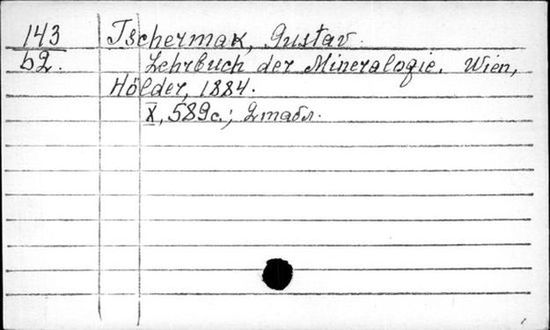 143 Tschermak, Gustav.
b2. Lehrbuch der Mineralogie. Wien,
Hölder, 1884.
X, 589c.; 2табл.